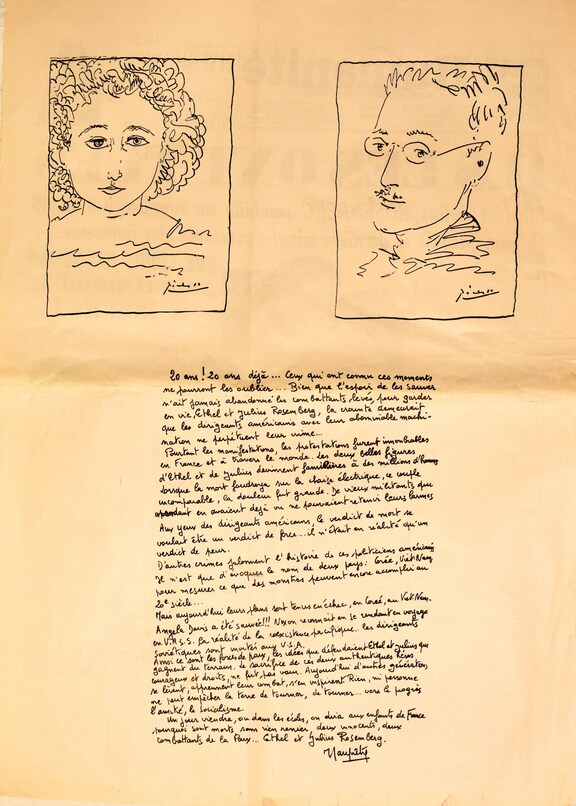 Picasso
Picasso
20 ans ! 20 ans déjà ... Ceux qui ont connu ces moments
ne pourront les oublier ... Bien que l'espoir de les sauver
n'ait jamais abandonné les combattants levés, pour garder
en vie, Ethel et Julius Rosenberg, la crainte demeurait
que les dirigeants américains avec leur abominable machi-
nation ne perpétuent leur crime...
Pourtant les manifestations, les protestations furent innombrables
en France et à travers le monde. Les deux belles figures
d'Ethel et de Julius devinrent familières à des millions d'hommes
lorsque la mort foudroya sur la chaise électrique, ce couple
incomparable, la douleur fut grande. De vieux militants qui
en avaient déjà vu ne pouvaient retenir leurs larmes
Aux yeux des dirigeants américains, le verdict de mort se
voulait être un verdict de force... il n'était en réalité qu'un
verdict de peur.
D'autres crimes jalonnent l'histoire de ces politiciens américains
Il n'est que d'évoquer le nom de deux pays : Corée, Viêt Nam,
pour mesurer ce que des monstres peuvent encore accomplir au
20e siècle...
Mais aujourd'hui leurs plans sont tenus en échec, en Corée, au Viêt Nam.
Angela Davis a été sauvée!!! Nixon reconnait en se rendant en voyage
en U.R.S.S. la réalité de la coexistence pacifique... les dirigeants
Soviétiques sont invités aux U.S.A.
Ainsi ce sont les forces de paix, les idées que défendaient Ethel et Julius qui
gagnent du terrain. Le sacrifice de ces deux authentiques héros
courageux et droits, ne fut pas vain. Aujourd'hui d'autres générations,
se lèvent, apprennent leur combat, s'en inspirent. Rien, ni personne
ne peut empêcher la terre de tourner, de tourner... vers le progrès
l'amitié, le socialisme.
Un jour viendra, ou dans les écoles, on dira aux enfants de France
pourquoi sont morts sans rien renier, deux innocents, deux
combattants de la Paix... Ethel et Julius Rosenberg.